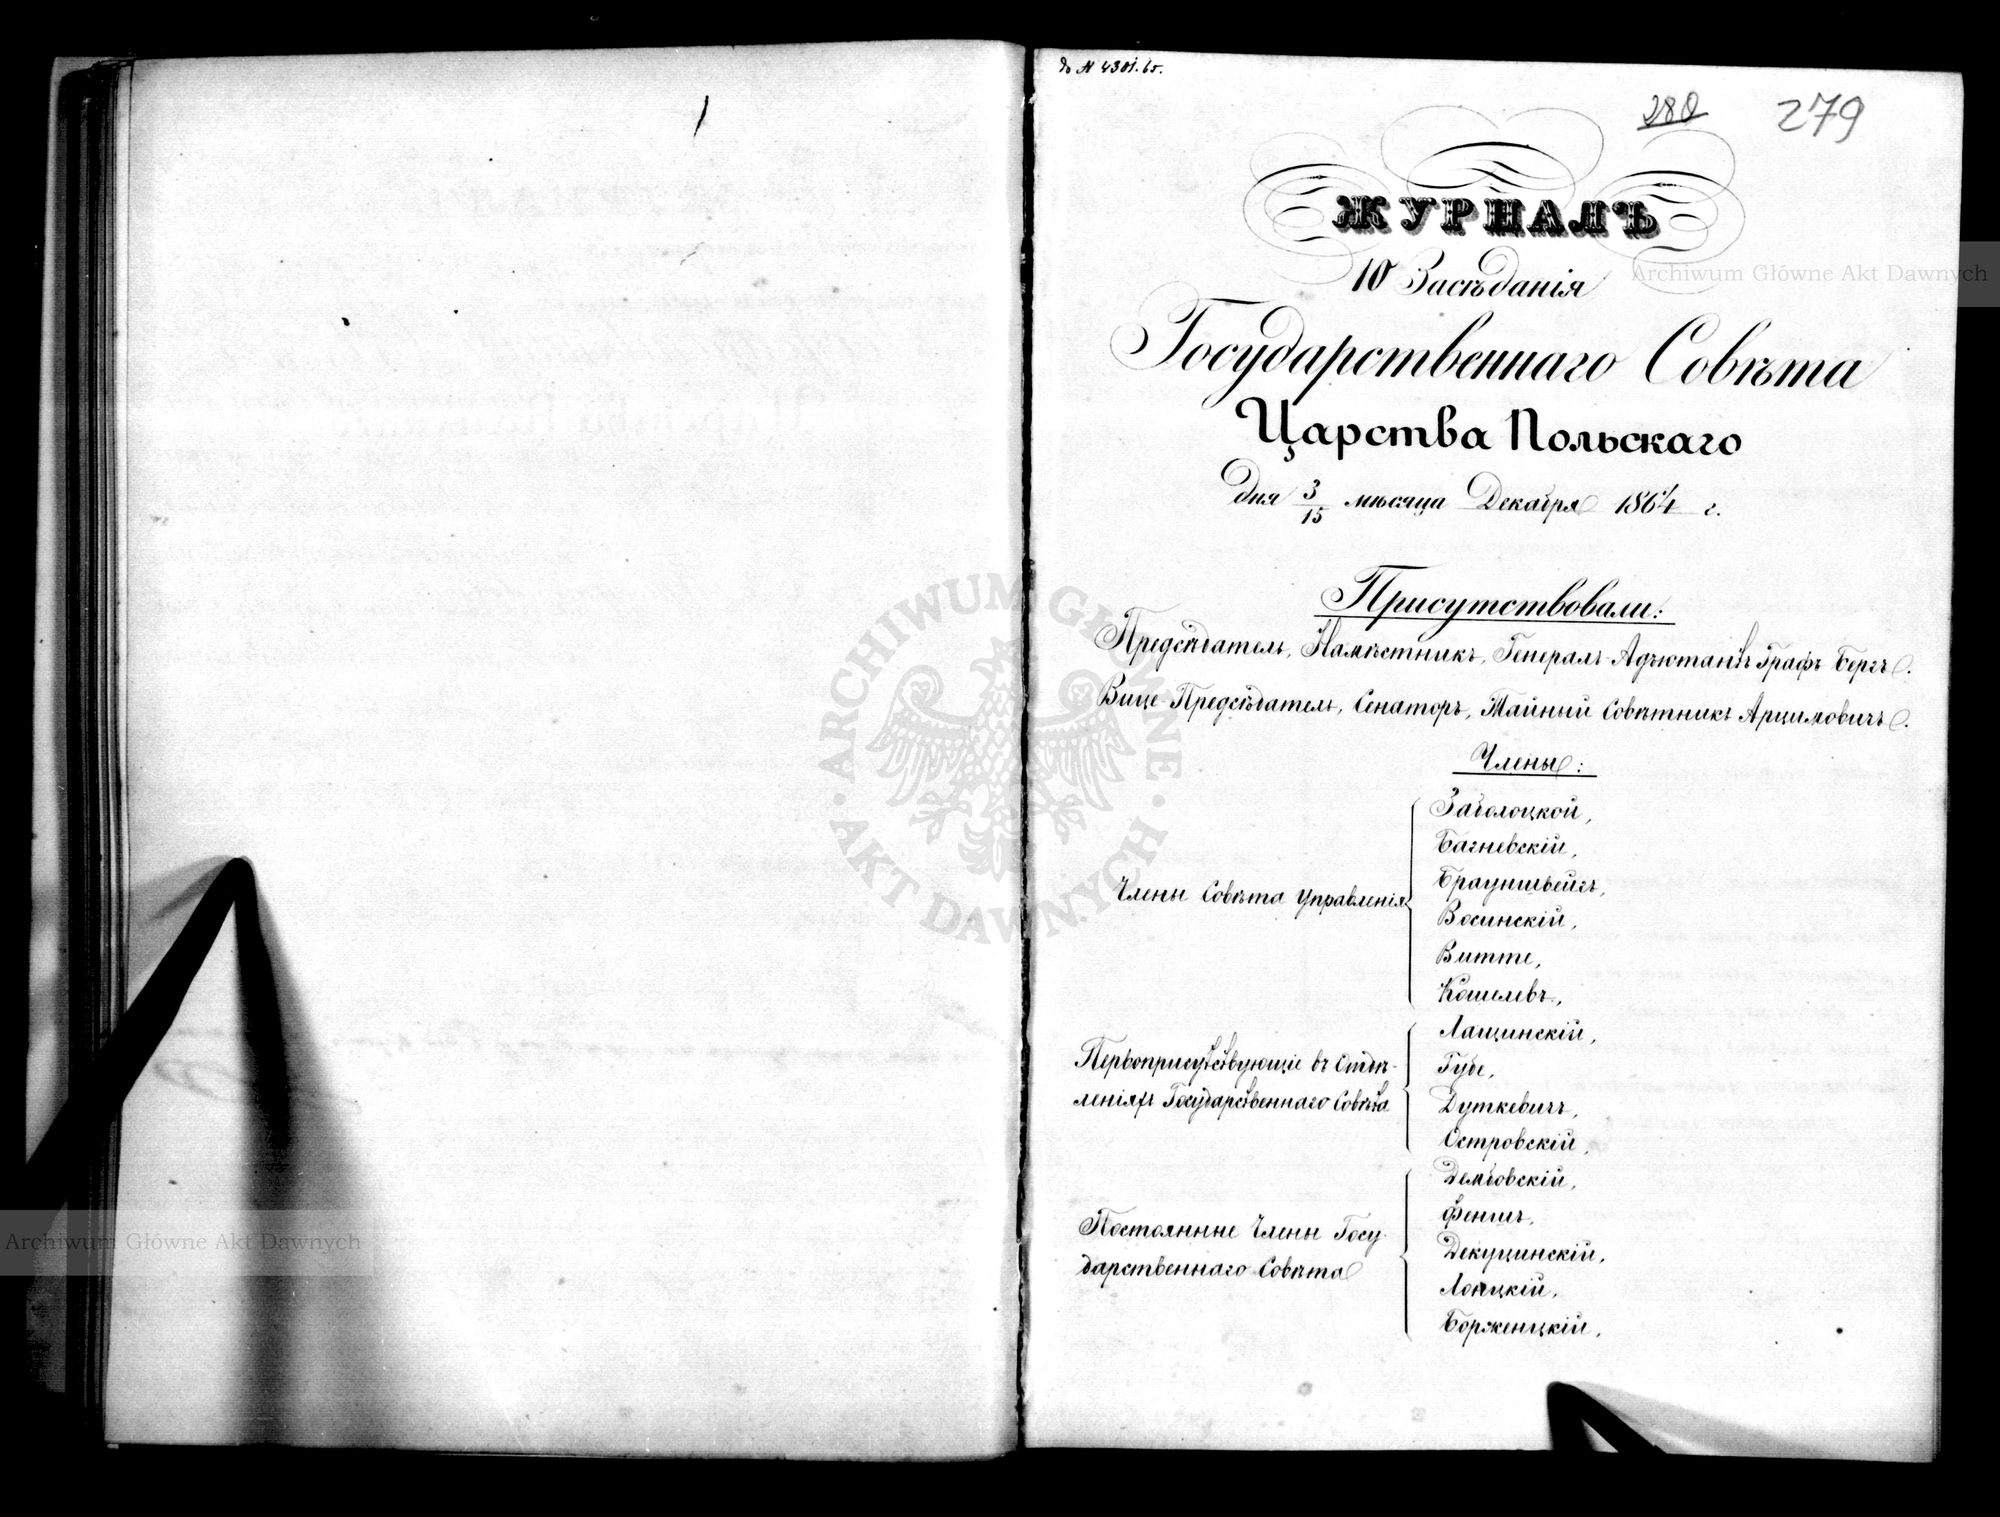 до N 4301.65.
280 279
ЖУРНАЛЪ
10 Засѣданія
Государственнаго Совѣта
Царства Польскаго
дня 3/15 мѣсяца Декабря 1864 г.
Присутствовали:
Предсѣдатель, Намѣстникъ, Генералъ-Адъютантъ Графъ Бергъ.
Вице-Предсѣдатель, Сенаторъ, Тайный Совѣтникъ Арцимовичъ.
Члены:
Члены Совѣта Управленія
Заболоцкой,
Багневскій,
Брауншвейгъ,
Восинскій,
Витте,
Кошелевъ,
Первоприсутствующіе въ Отдѣ-
леніяхъ Государственнаго Совѣта
Лащинскій,
Губе,
Дуткевичъ,
Островскій,
Постоянные Члены Госу-
дарственнаго Совѣта
Дембовскій,
Феншъ,
Декуцинскій,
Лонцкій,
Борженцкій,
Archiwum Główne Akt Dawnych
ARCHIWUM GŁÓWNE · AKT DAWNYCH ·
Archiwum Główne Akt Dawnych